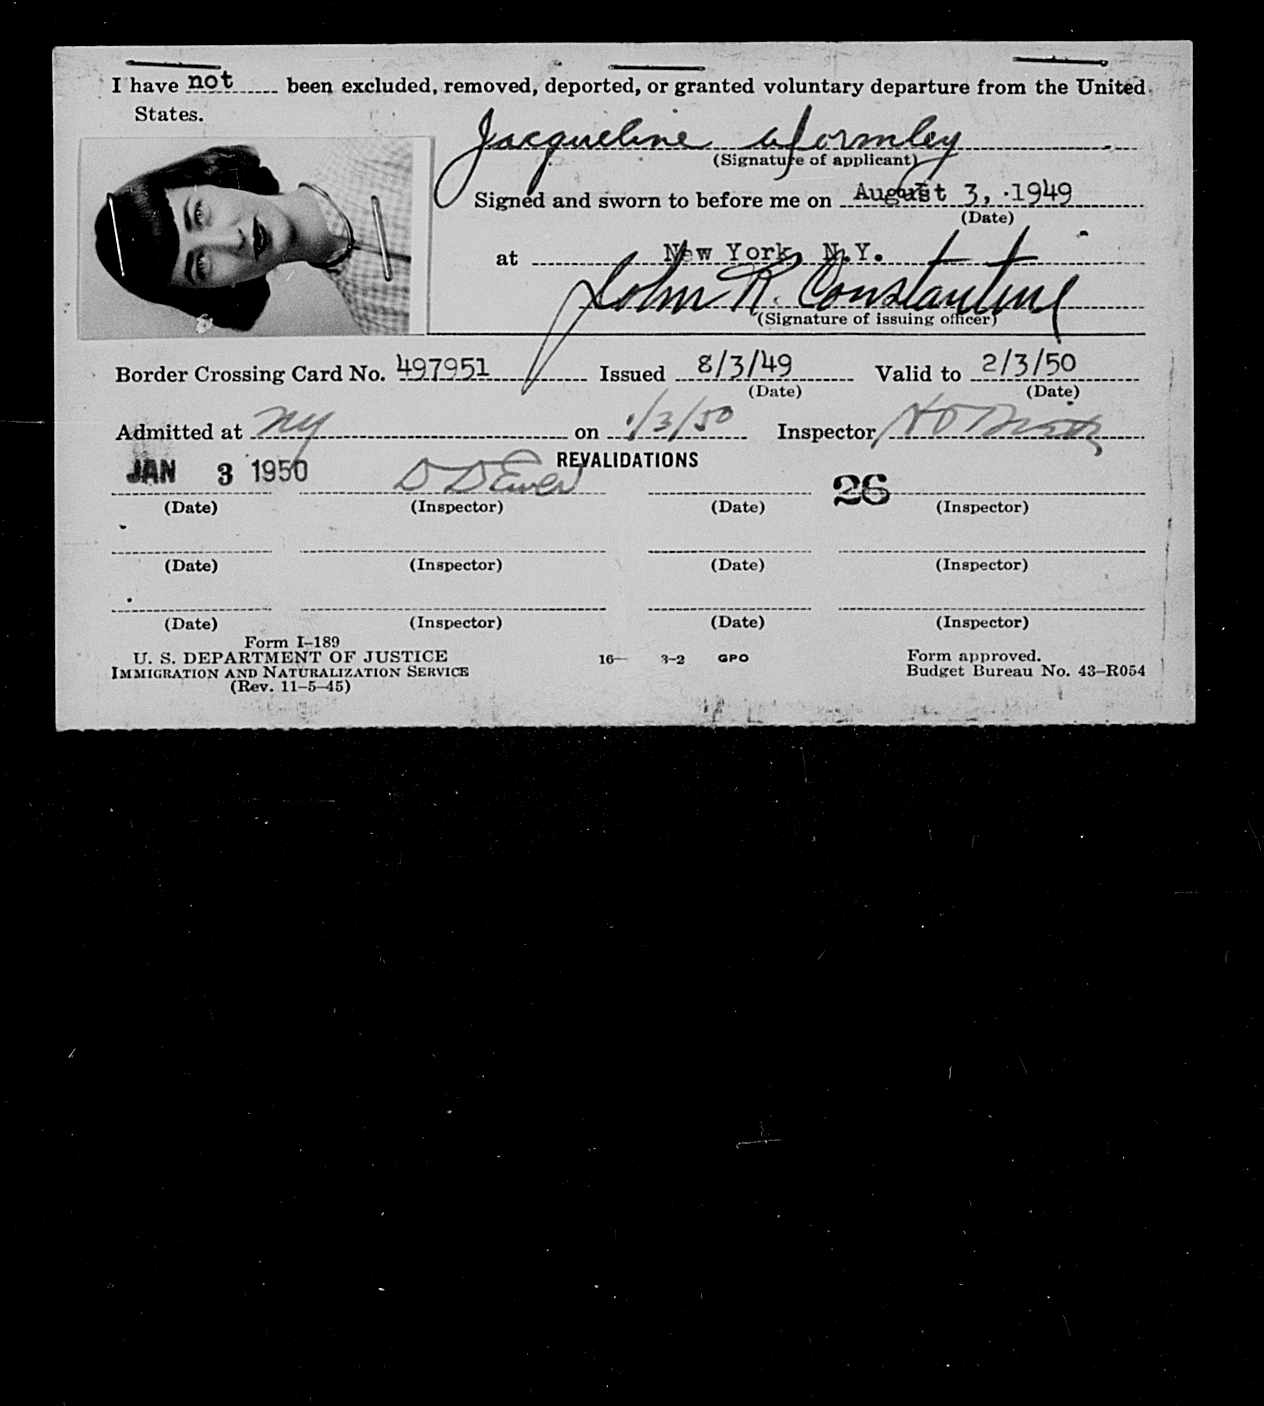 I have not been excluded, removed, deported, or granted voluntary departure from the United
States.
Jacqueline Wormley
(Signature of applicant)
Signed and sworn to before me on August 3, 1949
(Date)
at New York, N.Y.
John R. Constantine
(Signature of issuing officer)
Border Crossing Card No. 497951 Issued 8/3/49 Valid to 2/3/50
(Date) (Date)
Admitted at NY on 1/3/50 Inspector
REVALIDATIONS
JAN 3 1950 26
(Date) (Inspector) (Date) (Inspector)
(Date) (Inspector) (Date) (Inspector)
(Date) (Inspector) (Date) (Inspector)
Form I-189
U. S. DEPARTMENT OF JUSTICE 16— 3-2 GPO Form approved.
IMMIGRATION AND NATURALIZATION SERVICE Budget Bureau No. 43-R054
(Rev. 11-5-45)